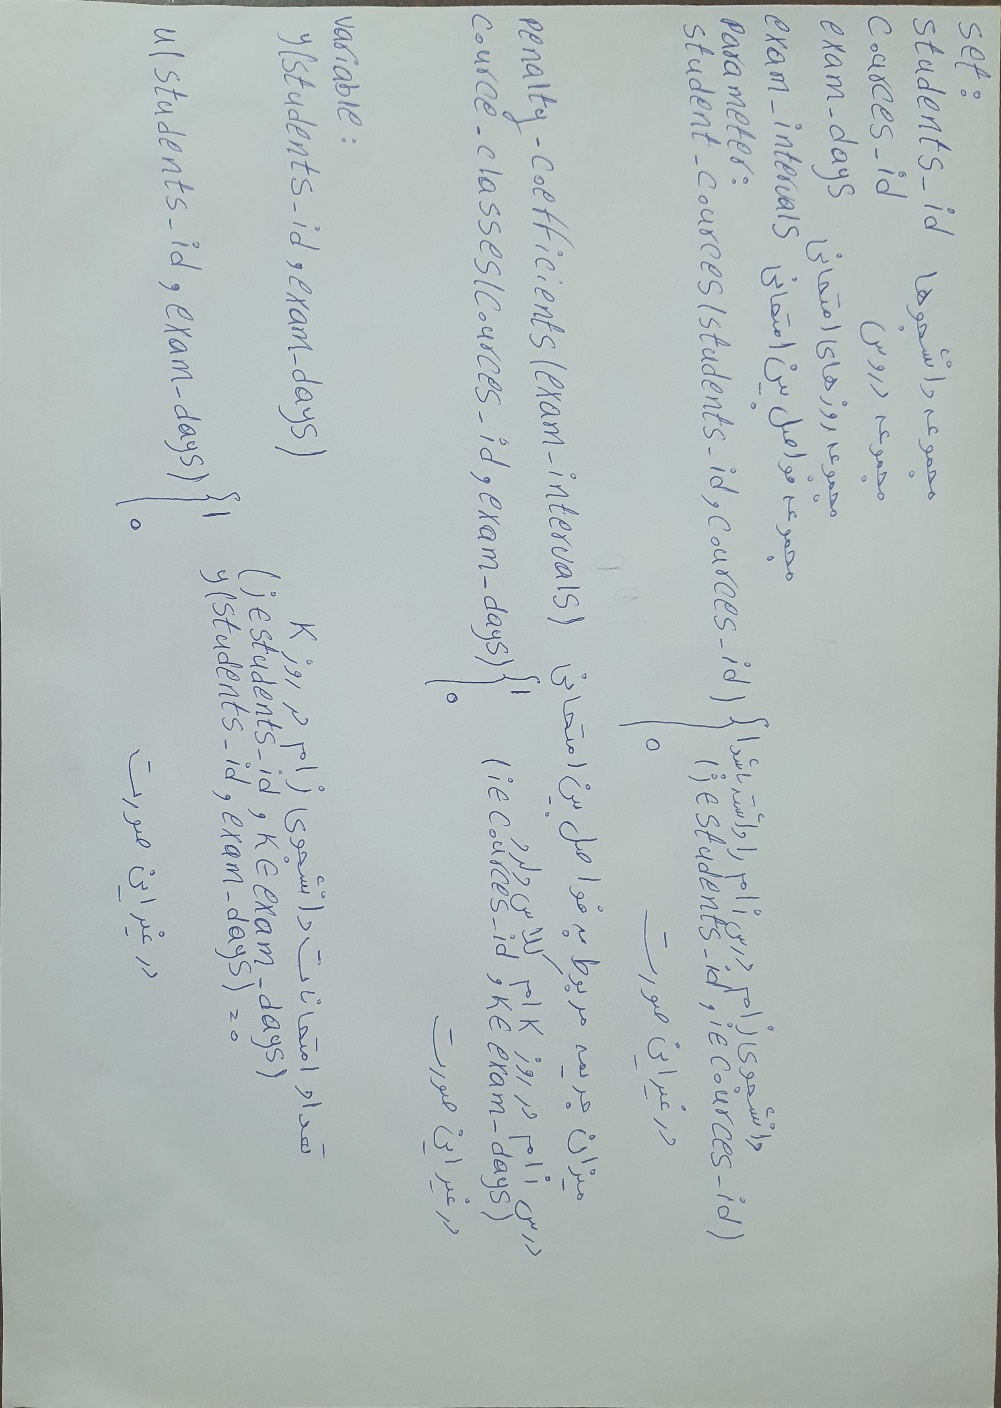 set:
students_id مجموعه دانشجوها
cources_id مجموعه دروس
exam_days مجموعه روزهای امتحانی
exam_intervals مجموعه فواصل بین امتحانی
parameter:
student_cources(students_id, cources_id) { 1 دانشجوی j ام درس i ام را داشته باشد
(j∈students_id, i∈cources_id)
0 در غیر این صورت
penalty_coefficients(exam_intervals) میزان جریمه مربوط به فواصل بین امتحانی
cource_classes(cources_id, exam_days) { 1 درس i ام در روز k ام کلاس دارد
(i∈cources_id, k∈exam_days)
0 در غیر این صورت
variable:
y(students_id, exam_days) تعداد امتحانات دانشجوی j ام در روز k
(j∈students_id, k∈exam_days)
u(students_id, exam_days) { 1 y(students_id, exam_days) = 0
0 در غیر این صورت